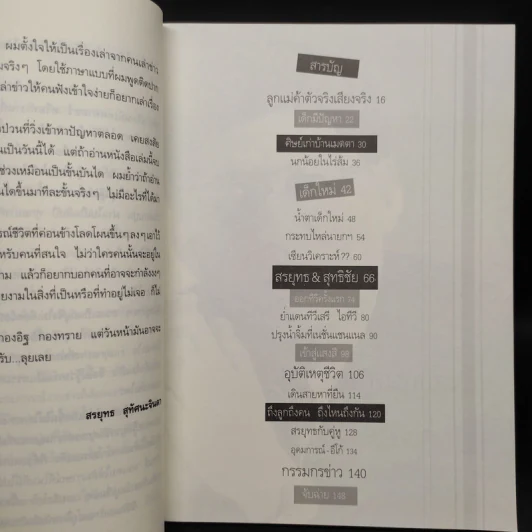 ผมตั้งใจให้เป็นเรื่องเล่าจากคนเล่าข่าว
นจริงๆ โดยใช้ภาษาแบบที่ผมพูดติดปาก
ล่าข่าวให้คนฟังเข้าใจง่ายก็อยากเล่าเรื่อง
ป่วนที่วิ่งเข้าหาปัญหาตลอด เคยสงสัย
นเป็นวันนี้ได้ แต่ถ้าอ่านหนังสือเล่มนี้จบ
ช่วงเหมือนเป็นขั้นบันได ผมย้ำว่าถ้าอ่าน
นโตขึ้นมาทีละขั้นจริงๆ ไม่มีอะไรที่ได้มา
รณ์ชีวิตที่ค่อนข้างโลดโผนขึ้นๆลงๆเอาไว้
หรับคนที่สนใจ ไม่ว่าใครคนนั้นจะอยู่ใน
าม แล้วก็อยากบอกคนที่อาจจะกำลังผจ
ยงามในสิ่งที่เป็นหรือที่ทำอยู่ไม่เจอ ก็ไม่
กองอิฐ กองทราย แต่วันหน้ามันอาจจะ
รับ...ลุยเลย
สรยุทธ สุทัศนะจินดา
สารบัญ
ลูกแม่ค้าตัวจริงเสียงจริง 16
เด็กมีปัญหา 22
ศิษย์เก่าบ้านเมตตา 30
นกน้อยในไร่ส้ม 36
เด็กใหม่ 42
น้ำตาเด็กใหม่ 48
กระทบไหล่นายกฯ 54
เซียนวิเคราะห์?? 60
สรยุทธ & สุทธิชัย 66
ออกทีวีครั้งแรก 74
ย่ำแดนทีวีเสรี ไอทีวี 80
ปรุงน้ำจิ้มที่เนชั่นแชนแนล 90
เข้าสู่แสงสี 98
อุบัติเหตุชีวิต 106
เดินสายหาที่ยืน 114
ถึงลูกถึงคน ถึงไหนถึงกัน 120
สรยุทธกับคู่หู 128
อุดมการณ์-อีโก้ 134
กรรมกรข่าว 140
จับฉ่าย 148